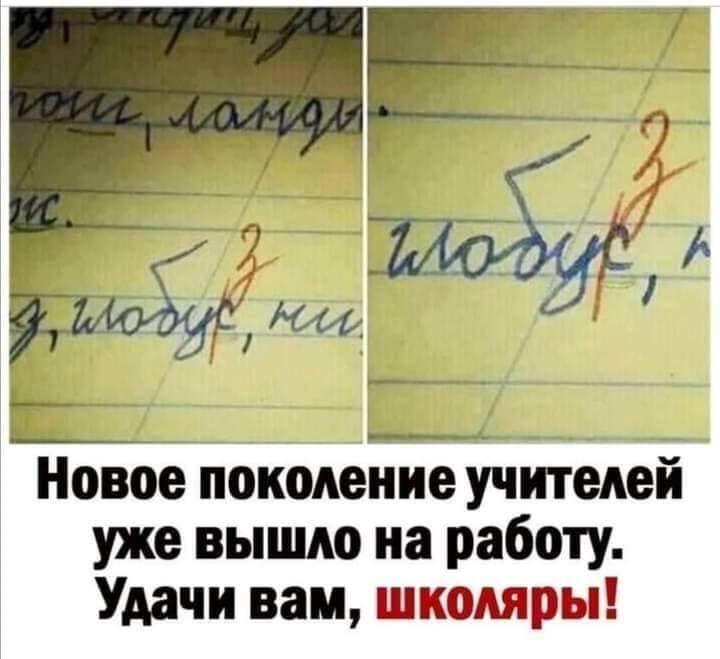 ландыш
ж.
з
з, глобус, ни
з
глобус, н
Новое поколение учителей
уже вышло на работу.
Удачи вам, школяры!